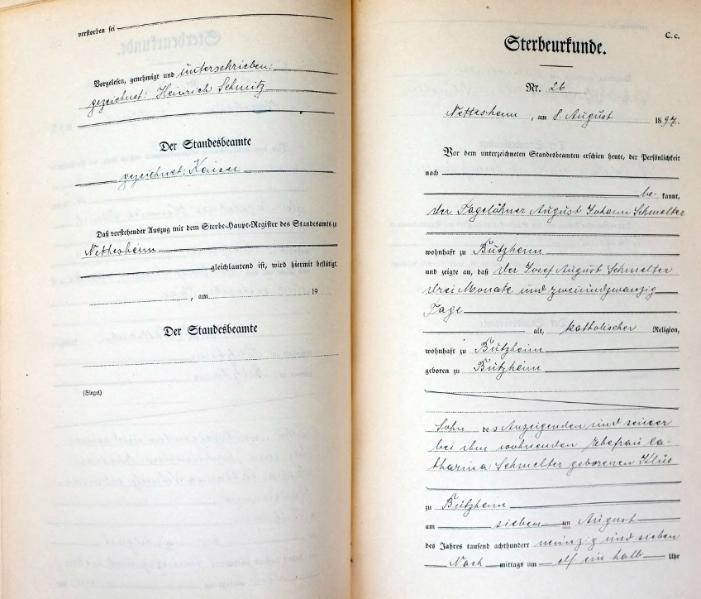 verstorben sei
Vorgelesen, genehmigt und unterschrieben:
gezeichnet: Heinrich Schmitz
Der Standesbeamte
gezeichnet: Kaiser
Daß vorstehender Auszug mit dem Sterbe-Haupt-Register des Standesamts zu
Nettesheim
gleichlautend ist, wird hiermit bestätigt
, am 19
Der Standesbeamte
(Siegel)
C. c.
Sterbeurkunde.
Nr. 26
Nettesheim, am 8 August 1897.
Vor dem unterzeichneten Standesbeamten erschien heute, der Persönlichkeit
nach
be kannt,
der Tagelöhner August Johann Schmelter
wohnhaft zu Bützheim
und zeigte an, daß der Josef August Schmelter
drei Monate und zweiundzwanzig
Tage
alt, katholischer Religion,
wohnhaft zu Bützheim
geboren zu Bützheim
Sohn des Anzeigenden und seiner
bei ihm wohnenden Ehefrau Ca-
tharina Schmelter geborenen
zu Bützheim
am sieben ten August
des Jahres tausend achthundert neunzig und sieben
Nach mittags um elf ein halb Uhr